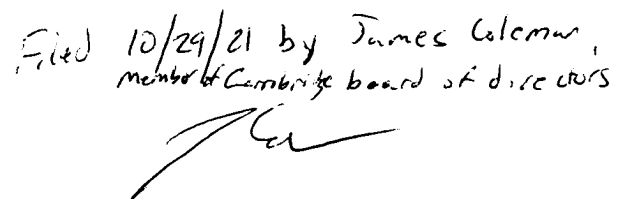 Filed 10/29/21 by James Coleman,
member of Cambridge board of directors